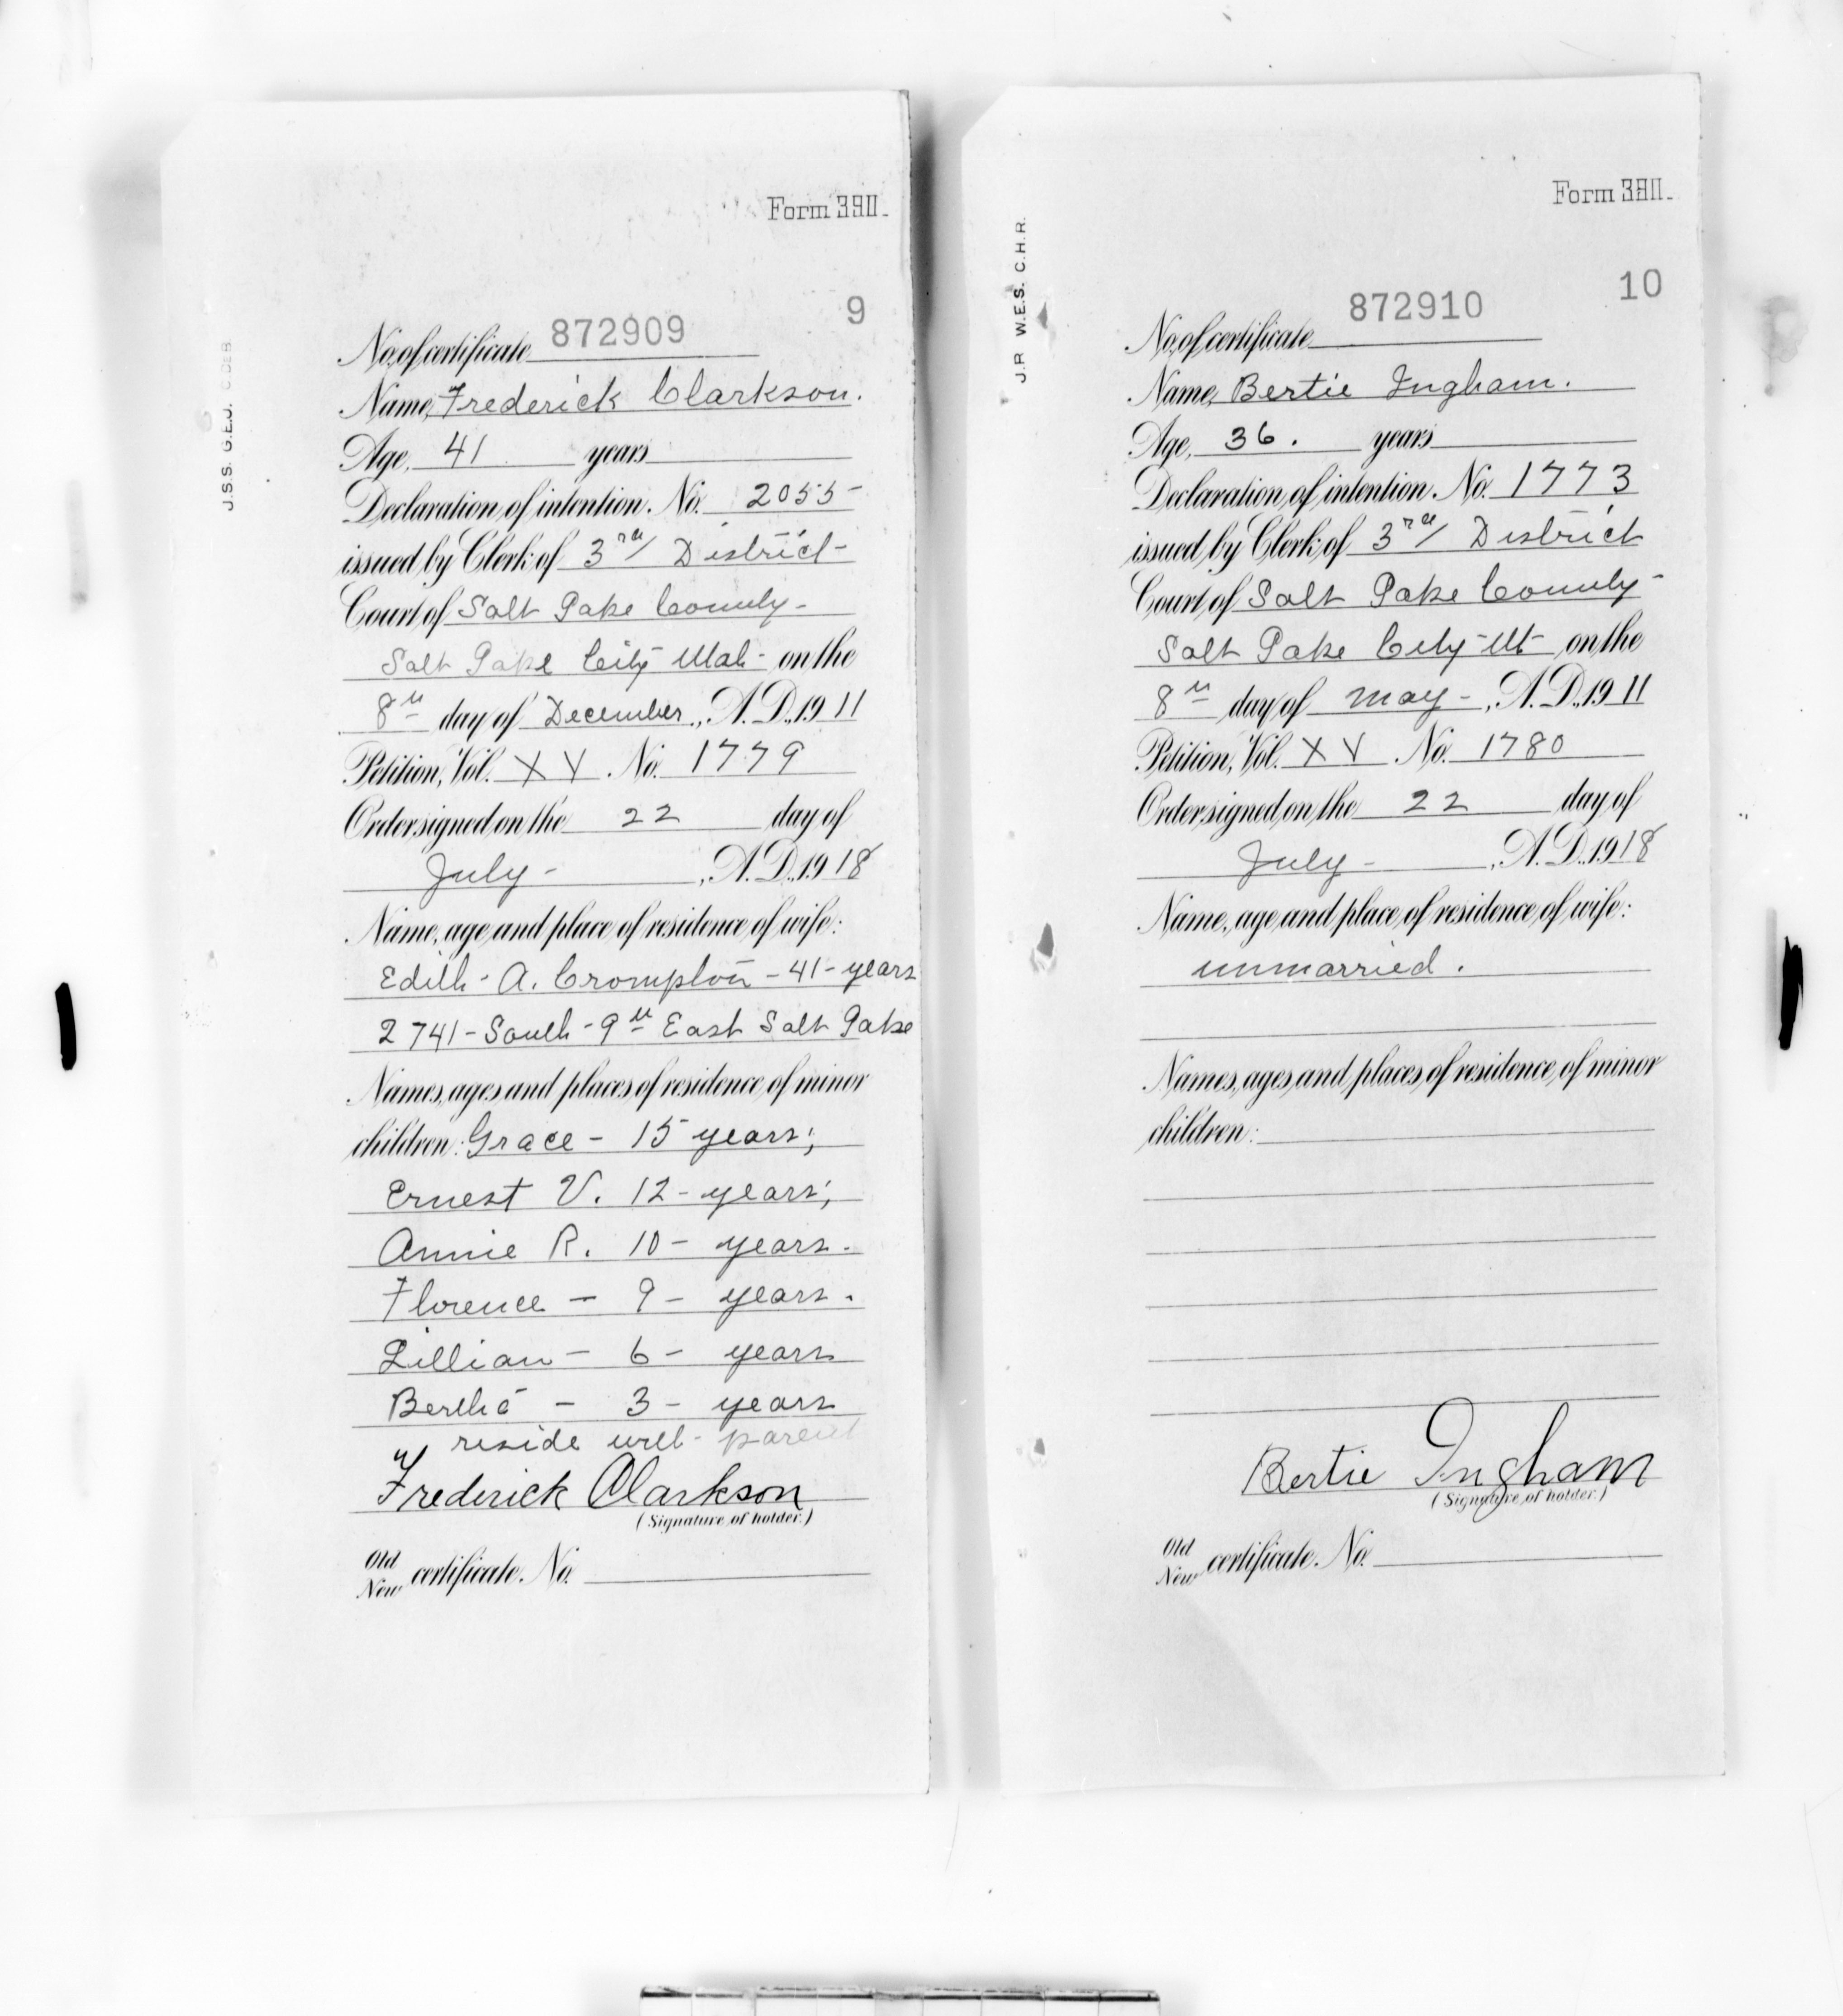 Form 380.
9
J.S.S. G.E.J.
No. of certificate 872909
Name, Frederick Clarkson.
Age, 41 years
Declaration of intention. No. 2055-
issued by Clerk of 3rd District-
Court of Salt Lake County-
Salt Lake City Utah- on the
8th day of December., A.D., 1911
Petition, Vol. XV. No. 1779
Order signed on the 22 day of
July-, A.D., 1918
Name, age and place of residence of wife:
Edith-A. Crompton-41-years
2741-South-9th East Salt Lake
Names, ages and places of residence of minor
children: Grace- 15 years;
Ernest V. 12-years;
Annie R. 10- years.
Florence - 9- years.
Lillian- 6- years
Bertha - 3- years
reside with parent
Frederick Clarkson
(Signature of holder.)
Old
New certificate. No.
Form 380.
10
J.P. W.E.S. C.H.R.
No. of certificate 872910
Name, Bertie Ingham.
Age, 36. years
Declaration of intention. No. 1773
issued by Clerk of 3rd District
Court of Salt Lake County-
Salt Lake City-Ut- on the
8th day of May-, A.D., 1911
Petition, Vol. XV. No. 1780
Order signed on the 22 day of
July-, A.D., 1918
Name, age and place of residence of wife:
unmarried.
Names, ages and places of residence of minor
children:
Bertie Ingham
(Signature of holder.)
Old
New certificate. No.